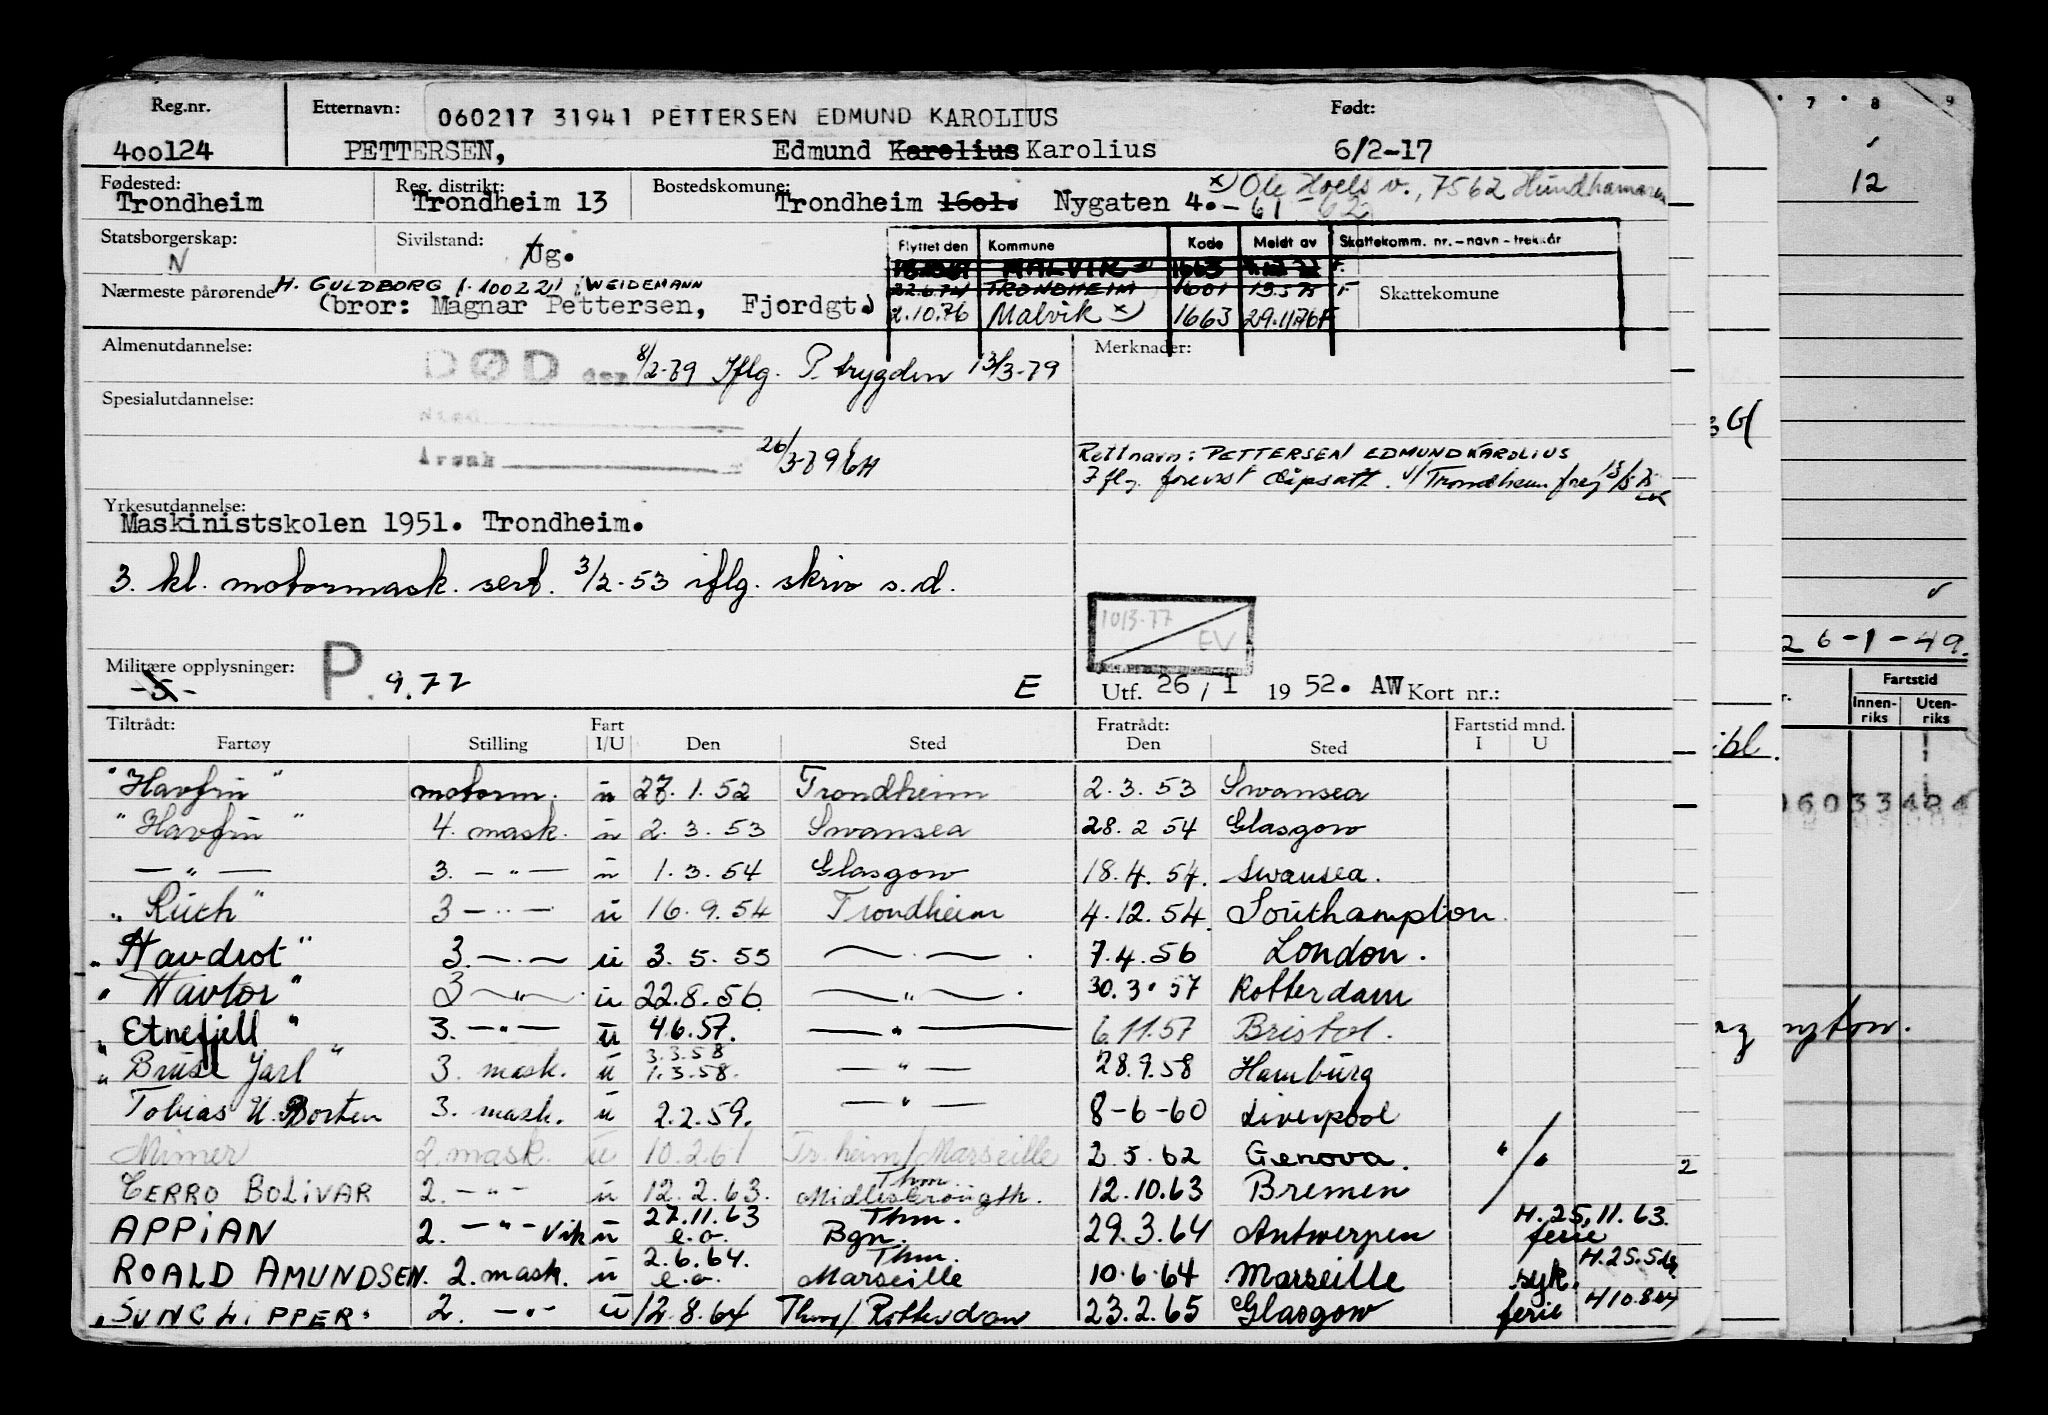 Reg.nr. Etternavn: 060217 31941 PETTERSEN EDMUND KAROLIUS Født:
400124 PETTERSEN, Edmund Karelius Karolius 6/2-17
Fødested: Reg. distrikt: Bostedskomune: x) Ole Hoels v., 7562 Hundhamaren
Trondheim Trondheim 13 Trondheim 1601. Nygaten 4. - 61 62
Statsborgerskap: Sivilstand: Flyttet den Kommune Kode Meldt av Skattekomm. nr. - navn - trekkår
N Ug. MALVIK 1663
Nærmeste pårørende H. GULDBORG f. 100221 WEIDEMANN 22.6.74 TRONDHEIM 1601 13.5.75 F Skattekomune
(bror: Magnar Pettersen, Fjordgt.) 2.10.76 Malvik x) 1663 29.11.76 F
Almenutdannelse: Merknader:
DØD den 8/2-79 Iflg. P. trygden 13/3-79
Spesialutdannelse: Sted
Årsak 26/3-79
Rett navn: PETTERSEN EDMUND KAROLIUS
Iflg. forevist dåpsatt. v/Trondheim
Yrkesutdannelse:
Maskinistskolen 1951. Trondheim.
3. kl. motormask. sert. 3/2-53 iflg. skriv s.d.
EV
Militære opplysninger: P. 9.77 E Utf. 26 / I 19 52. AW Kort nr.:
-5-
Tiltrådt: Fart Fratrådt: Fartstid mnd.
Fartøy Stilling I/U Den Sted Den Sted I U
"Havfru" motorm. u 27.1.52 Trondheim 2.3.53 Swansea
"Havfru" 4. mask. u 2.3.53 Swansea 28.2 54 Glasgow
— " — 3. — " — u 1.3.54 Glasgow 18.4.54. Swansea.
"Ruth" 3 — " — u 16.9.54 Trondheim 4.12.54 Southampton
"Havdrot" 3. — " — u 3.5.55 — " — 7.4.56 London.
"Havtor" 3 — " — u 22.8.56 — " — 30.3.57 Rotterdam
"Etnefjell" 3. — " — u 4.6.57. — " — 6.11.57 Bristol.
"Bruse Jarl" 3. mask. u 3.3.58 1.3.58. — " — 28.9.58 Hamburg
Tobias U. Borten 3. mask. u 2.2.59. — " — 8-6-60 Liverpool
Mimer 2. mask. u 10.2.61 Tr.heim/Marseille 2.5.62 Genova.
CERRO BOLIVAR 2. — " — u 12.2.63. Thm. 12.10.63 Bremen
APPIAN 2. — " — vik u 27.11.63 e.o. Thm. Bgn. 29.3.64 Antwerpen H. 25.11.63. ferie
ROALD AMUNDSEN. 2. mask. u 2.6.64. e.o. Thm. Marseille 10.6.64 Marseille syk. H. 25.5.64
"SUNCLIPPER" 2. — " — u 12.8.64 Thm/Rotterdam 23.2.65 Glasgow ferie H 10.8.64
7 8 9
12
26-1-49.
Fartstid
Innen-riks Uten-riks
ibl.
ngton.
2